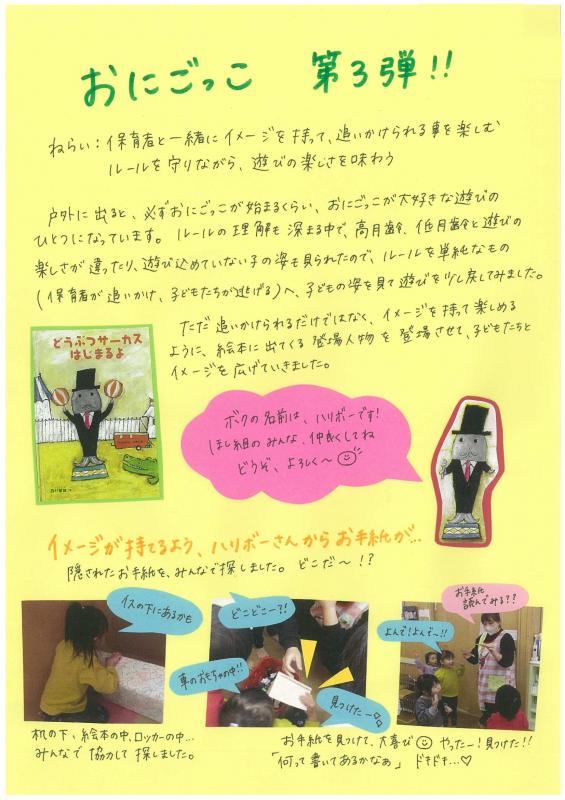 おにごっこ 第3弾!!
ねらい：保育者と一緒にイメージを持って、追いかけられる事を楽しむ
ルールを守りながら、遊びの楽しさを味わう
戸外に出ると、必ずおにごっこが始まるくらい、おにごっこが大好きな遊びの
ひとつになっています。ルールの理解も深まる中で、高月齢、低月齢と遊びの
楽しさが違ったり、遊び込めていない子の姿も見られたので、ルールを単純なもの
(保育者が追いかけ、子どもたちが逃げる)へ、子どもの姿を見て遊びを少し戻してみました。
ただ追いかけられるだけではなく、イメージを持って楽しめる
ように、絵本に出てくる登場人物を登場させて、子どもたちと
イメージを広げていきました。
どうぶつサーカス
はじまるよ
ボクの名前は、ハリボーです!
ほし組のみんな、仲良くしてね
どうぞ、よろしく〜
イメージが持てるよう、ハリボーさんからお手紙が…
隠されたお手紙を、みんなで探しました。どこだ〜!?
イスの下にあるかも
どこどこー?!
車のおもちゃの中!!
見つけたー
お手紙
読んでみる??
よんで!よんで〜!!
机の下、絵本の中、ロッカーの中…
みんなで協力して探しました。
お手紙を見つけて、大喜び やったー!見つけた!!
「何って書いてあるかなぁ」ドキドキ…♡